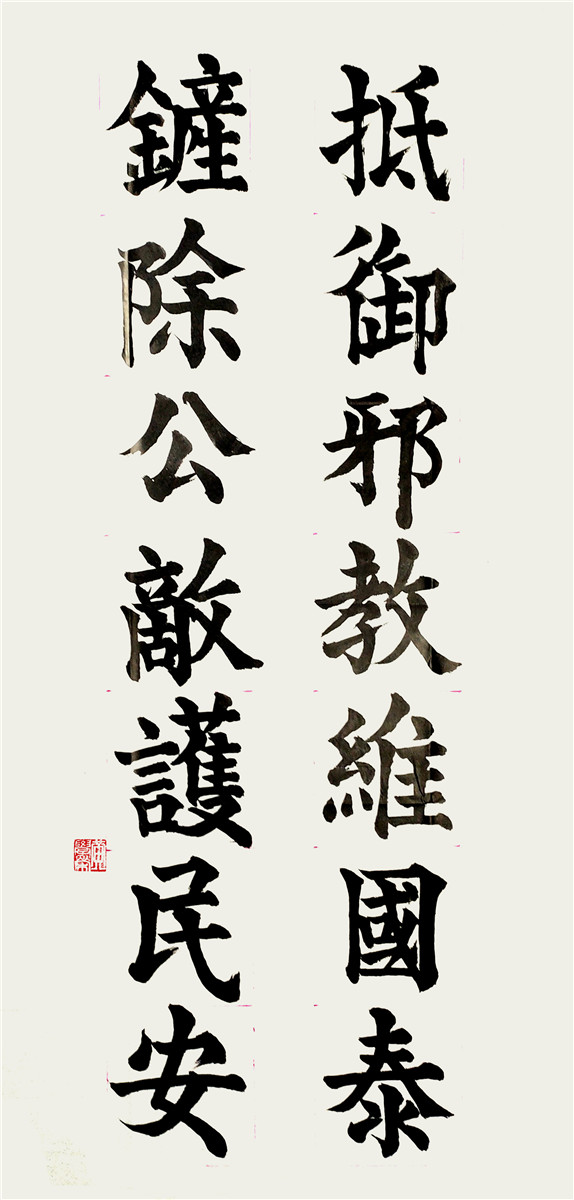 抵御邪教維國泰
鏟除公敵護民安